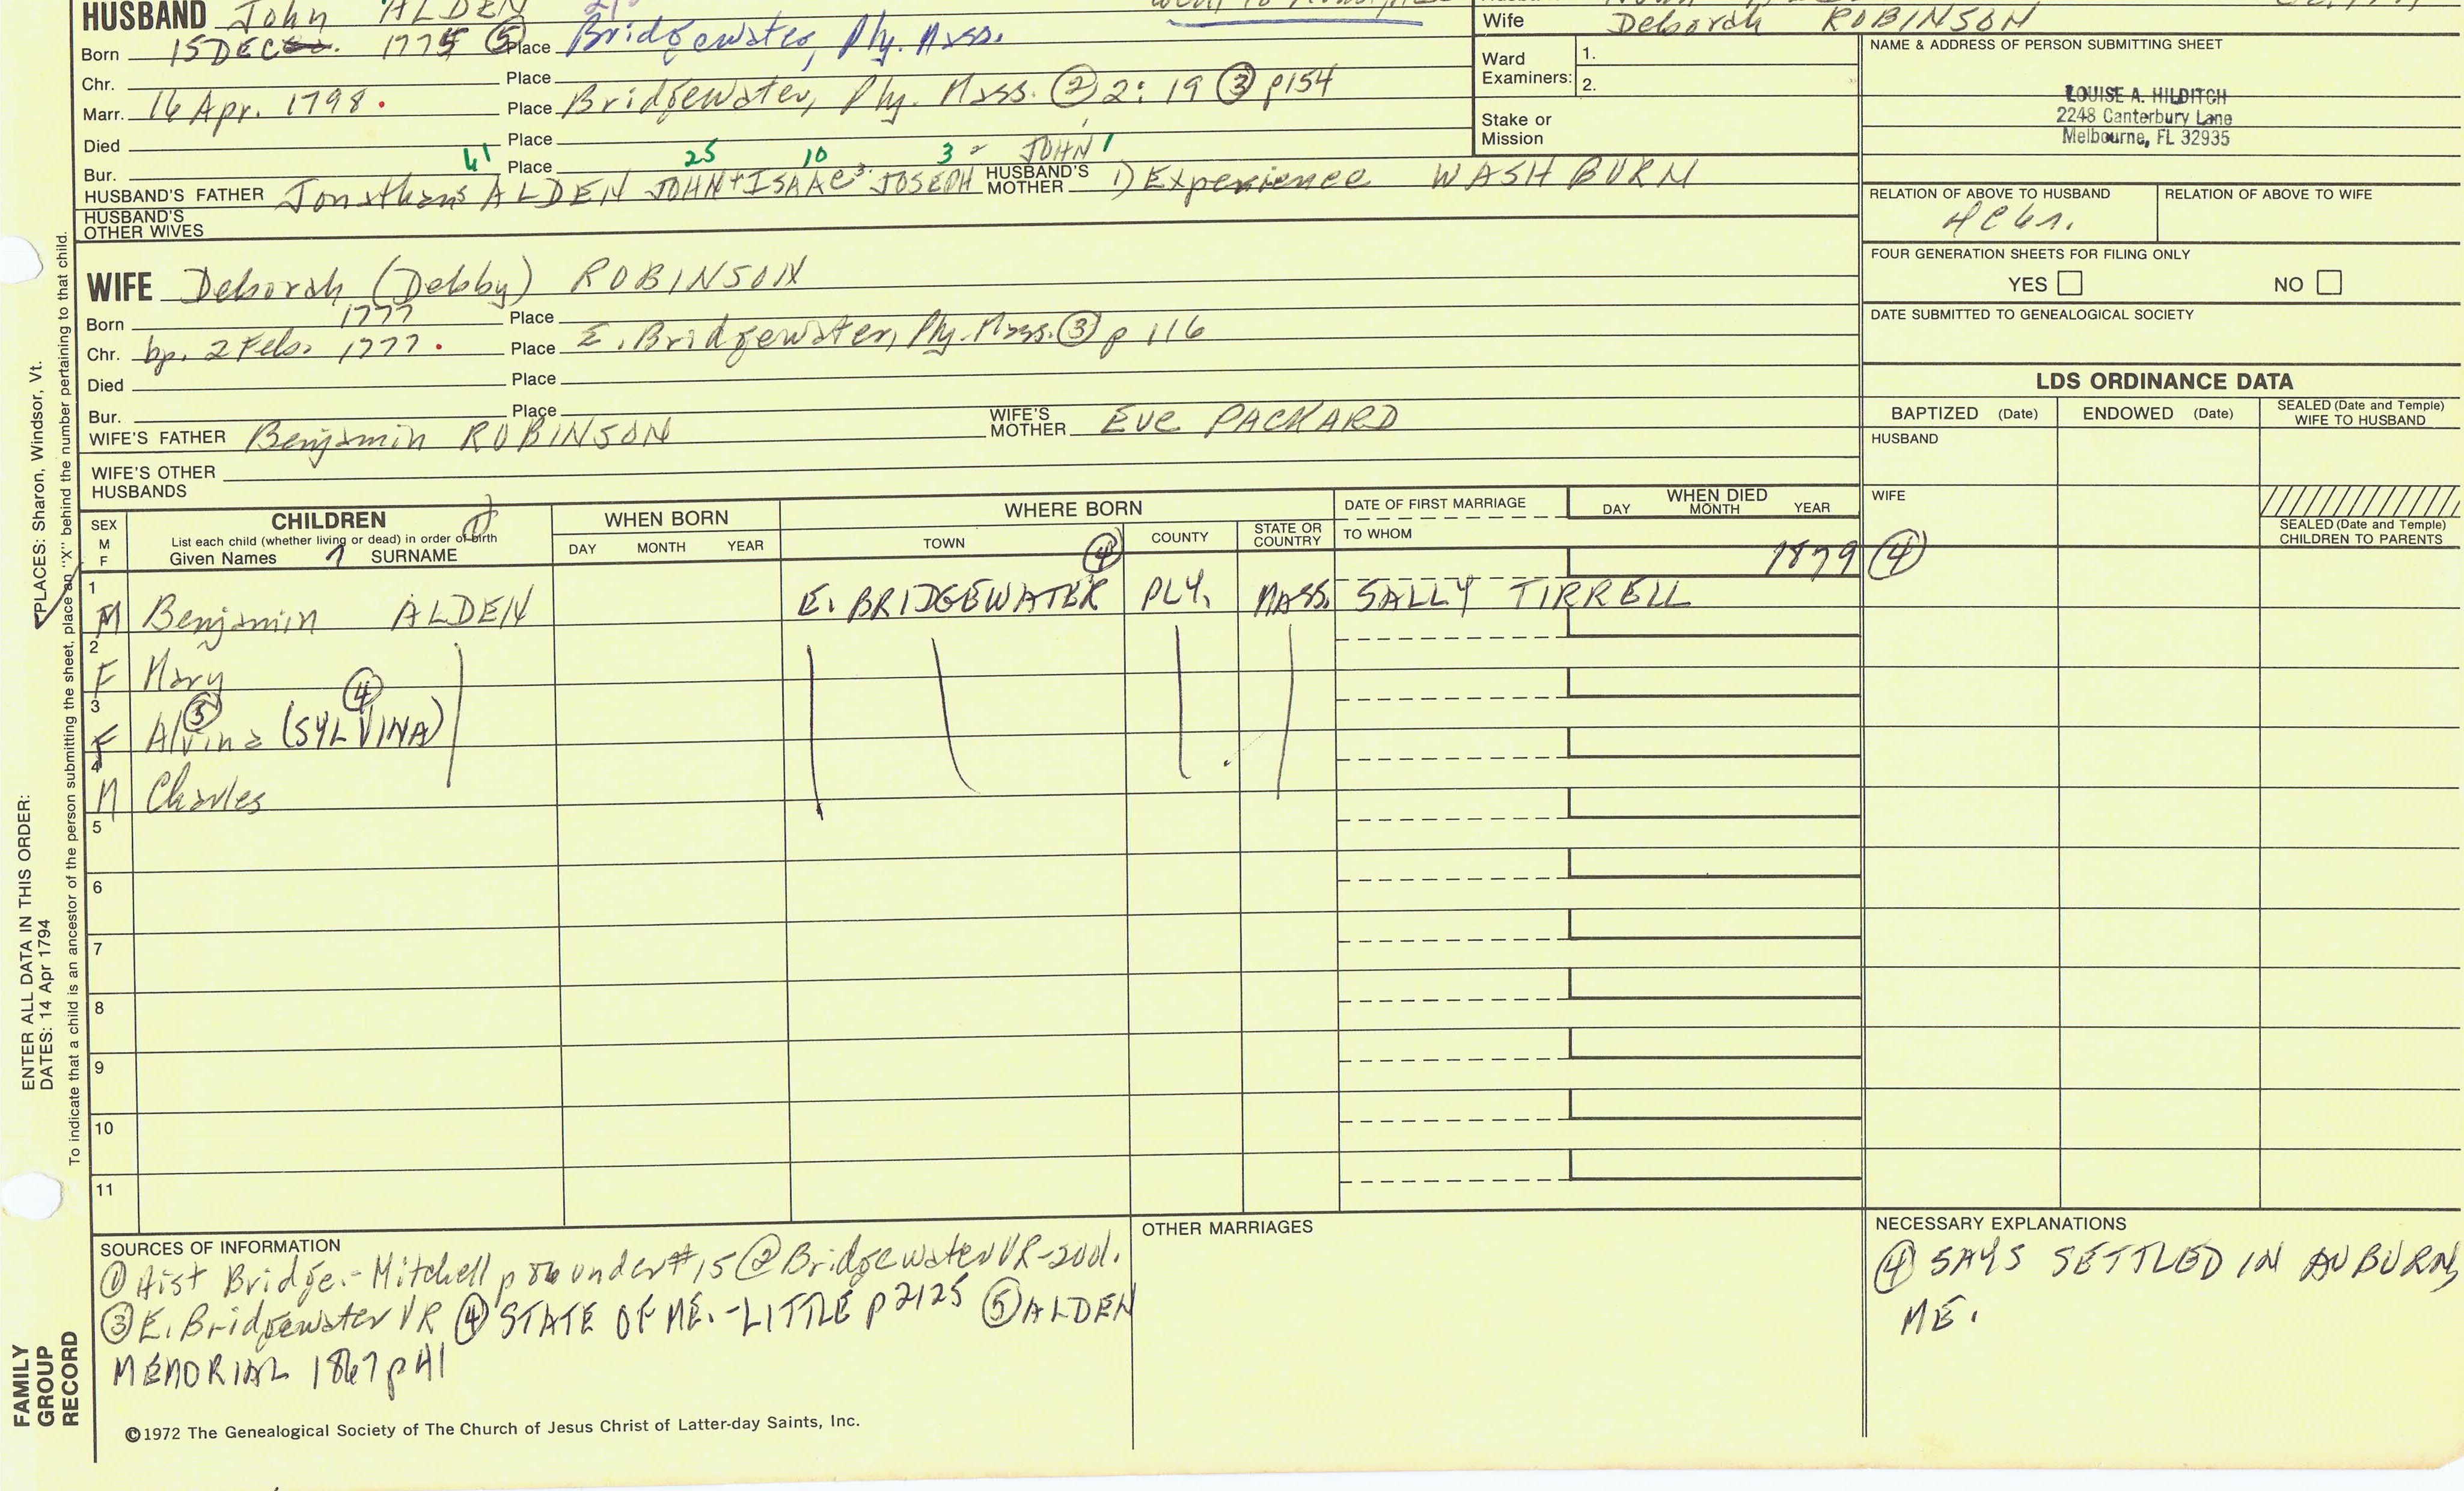 HUSBAND John ALDEN
Wife Deborah ROBINSON
Born 15 DEC 1775 ⑤ Place Bridgewater, Ply. Mass.
NAME & ADDRESS OF PERSON SUBMITTING SHEET
Ward Examiners: 1.
2.
Chr. Place
LOUISE A. HILDITCH
2248 Canterbury Lane
Melbourne, FL 32935
Marr. 16 Apr. 1798. Place Bridgewater, Ply. Mass. ② 2: 19 ③ p154
Stake or Mission
Died Place
41 25 10 3 2 JOHN 1
Bur. Place
HUSBAND'S FATHER Jonathan5 ALDEN JOHN4 ISAAC3 JOSEPH HUSBAND'S MOTHER 1) Experience WASHBURN
RELATION OF ABOVE TO HUSBAND
RELATION OF ABOVE TO WIFE
HUSBAND'S OTHER WIVES
FOUR GENERATION SHEETS FOR FILING ONLY
YES NO
WIFE Deborah (Debby) ROBINSON
DATE SUBMITTED TO GENEALOGICAL SOCIETY
Born 1777 Place
Chr. bp. 2 Feb. 1777. Place E. Bridgewater, Ply. Mass. ③ p 116
Died Place
Bur. Place
WIFE'S FATHER Benjamin ROBINSON WIFE'S MOTHER Eve PACKARD
WIFE'S OTHER HUSBANDS
LDS ORDINANCE DATA
BAPTIZED (Date) ENDOWED (Date) SEALED (Date and Temple) WIFE TO HUSBAND
HUSBAND
WIFE
SEALED (Date and Temple) CHILDREN TO PARENTS
SEX M F
CHILDREN
List each child (whether living or dead) in order of birth
Given Names SURNAME
WHEN BORN
DAY MONTH YEAR
WHERE BORN
TOWN ④ COUNTY STATE OR COUNTRY
DATE OF FIRST MARRIAGE
TO WHOM
WHEN DIED
DAY MONTH YEAR
1879 ④
1 M Benjamin ALDEN E. BRIDGEWATER PLY. MASS. SALLY TIRRELL
2 F Mary
3 F Alvina ⑤ (SYLVINA) ④
4 M Charles
5
6
7
8
9
10
11
SOURCES OF INFORMATION
① Hist Bridge.- Mitchell p under #15 ② Bridgewater VR-
③ E. Bridgewater VR ④ STATE OF ME.-LITTLE p2125 ⑤ ALDEN
MEMORIAL 1867 p41
OTHER MARRIAGES
NECESSARY EXPLANATIONS
④ SAYS SETTLED IN AUBURN,
ME.
©1972 The Genealogical Society of The Church of Jesus Christ of Latter-day Saints, Inc.
ENTER ALL DATA IN THIS ORDER:
DATES: 14 Apr 1794
PLACES: Sharon, Windsor, Vt.
To indicate that a child is an ancestor of the person submitting the sheet, place an "X" behind the number pertaining to that child.
FAMILY
GROUP
RECORD